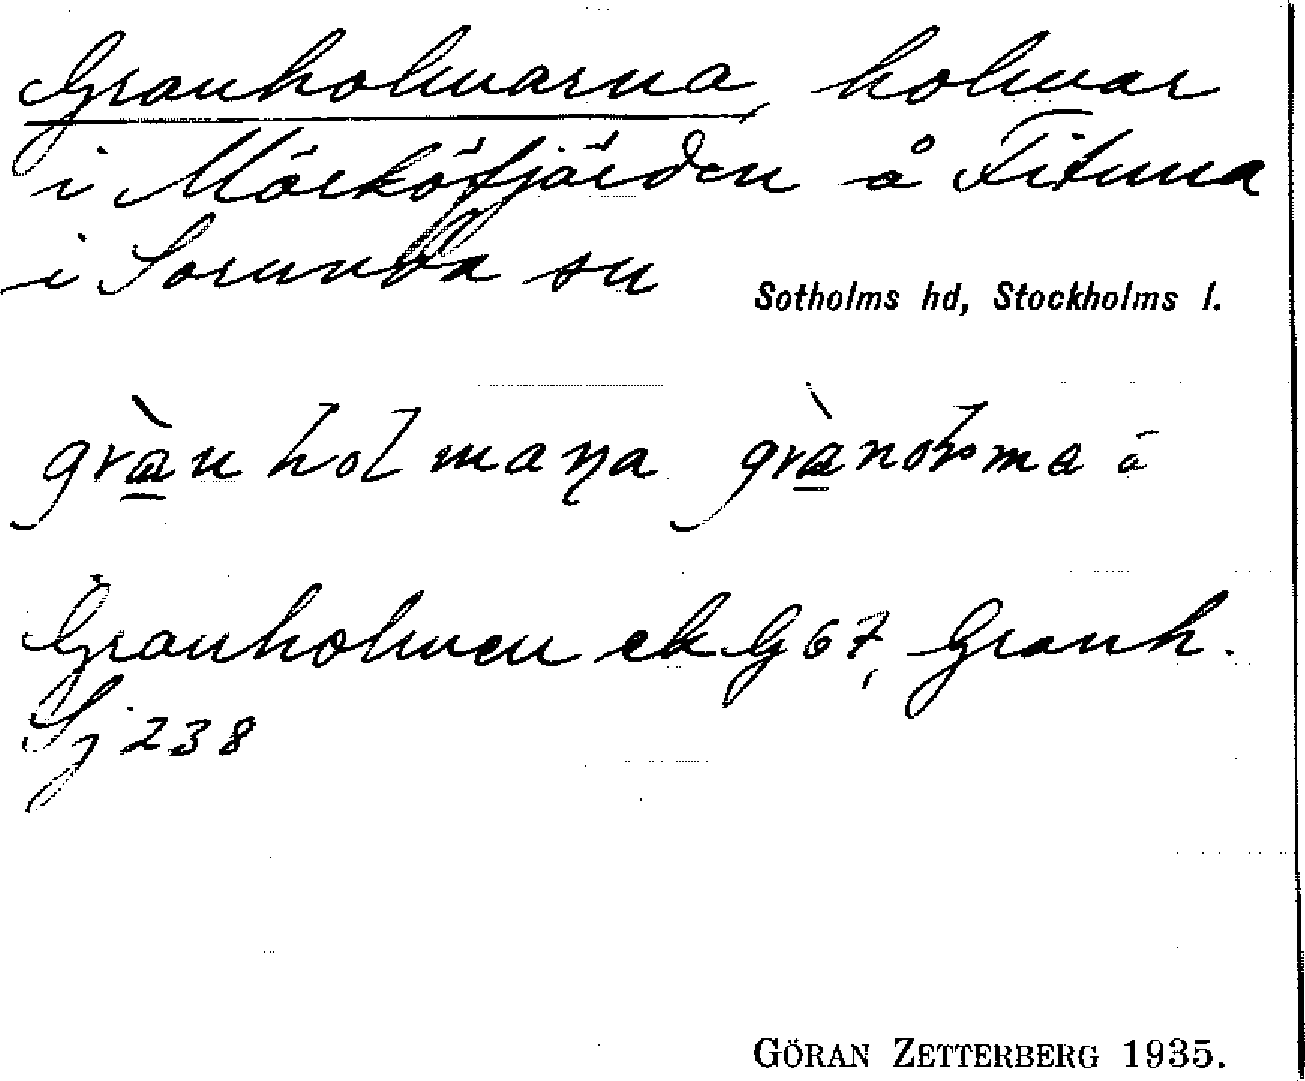 Granholmarna, holmar
i Mörköfjärden å Fituna
i Sorunda sn
Sotholms hd, Stockholms l.
Granholmen ek G 67, Granh.
Sj 238
GÖRAN ZETTERBERG 1935.